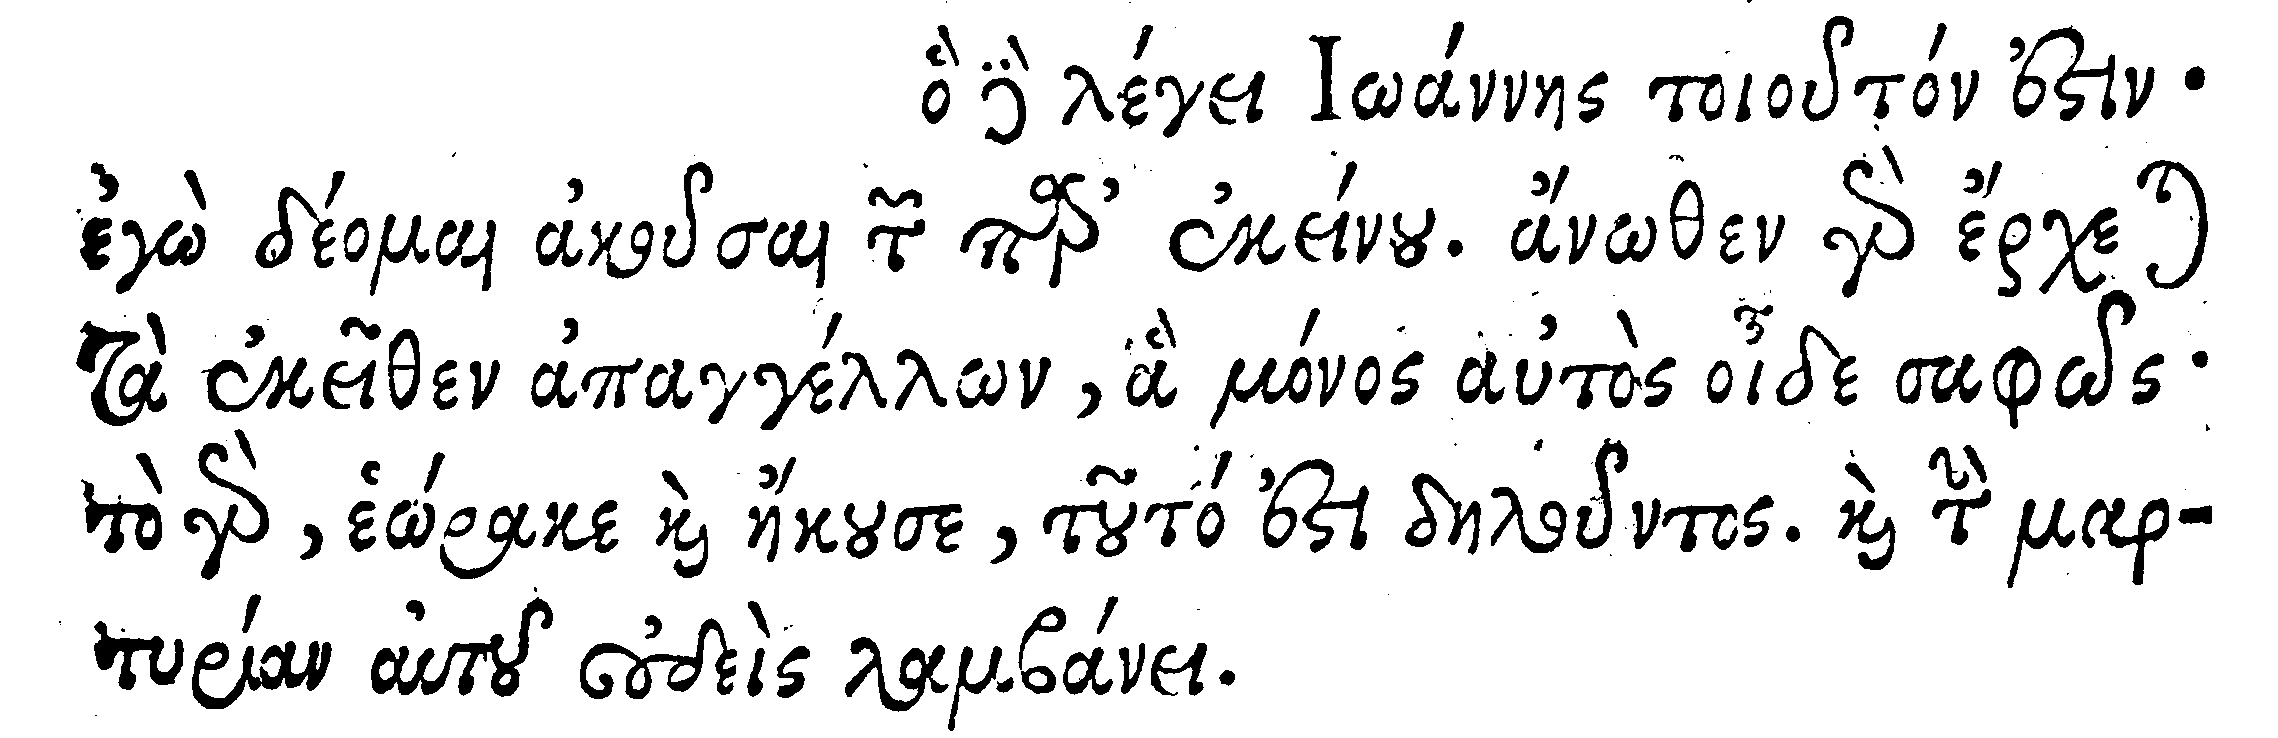 ὃ δὲ λέγει Ιωάννης τοιοῦτόν ἐστιν·
ἐγὼ δέομαι ἀκοῦσαι τῶν παρ' ἐκείνου. ἄνωθεν γὰρ ἔρχεται
τὰ ἐκεῖθεν ἀπαγγέλλων, ἃ μόνος αὐτὸς οἶδε σαφῶς·
τὸ γὰρ, ἑώρακε καὶ ἤκουσε, τοῦτό ἐστι δηλοῦντος. καὶ τὴν μαρ-
τυρίαν αὐτοῦ οὐδεὶς λαμβάνει.